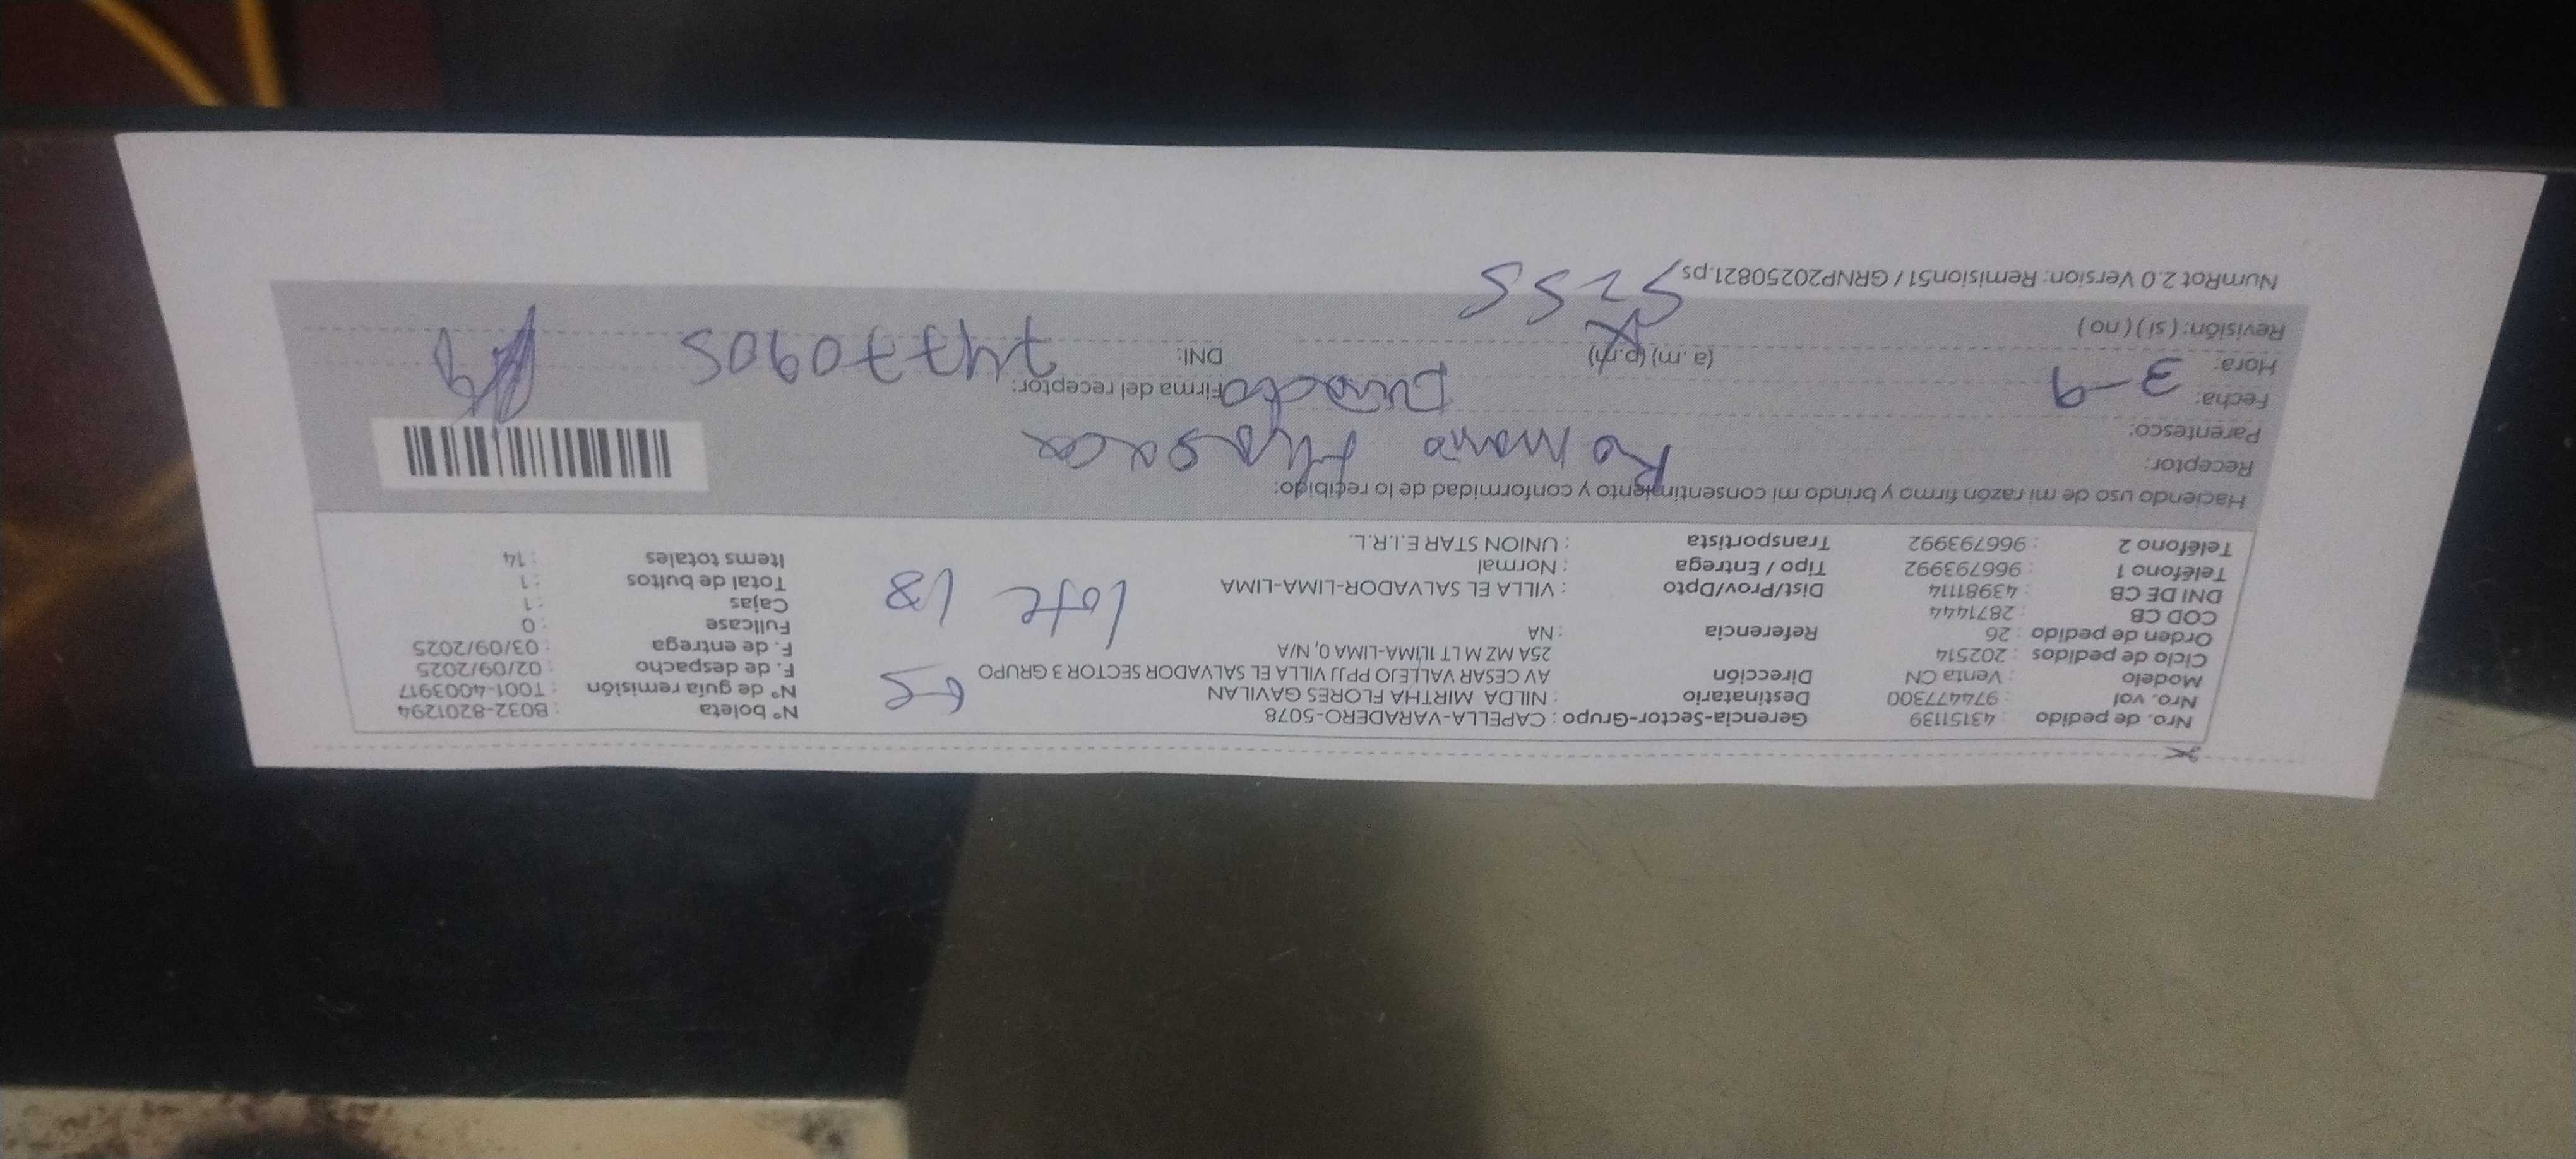 Nro. de pedido : 43151139 Gerencia-Sector-Grupo : CAPELLA-VARADERO-5078 N° boleta : B032-8201294
Nro. val : 974477300 Destinatario : NILDA MIRTHA FLORES GAVILAN N° de guía remisión : T001-4003917
Modelo : Venta CN Dirección : AV CESAR VALLEJO PPJJ VILLA EL SALVADOR SECTOR 3 GRUPO F. de despacho : 02/09/2025
Ciclo de pedidos : 202514 25A MZ M LT 1LIMA-LIMA 0, N/A F. de entrega : 03/09/2025
Orden de pedido : 26 Referencia : NA Fullcase : 0
COD CB : 2871444 lote 18 Cajas : 1
DNI DE CB : 43981114 Dist/Prov/Dpto : VILLA EL SALVADOR-LIMA-LIMA Total de bultos : 1
Teléfono 1 : 966793992 Tipo / Entrega : Normal Items totales : 14
Teléfono 2 : 966793992 Transportista : UNION STAR E.I.R.L.
Haciendo uso de mi razón firmo y brindo mi consentimiento y conformidad de lo recibido:
Receptor: Romario
Parentesco:
Fecha: 3-9 Firma del receptor:
Hora: (a.m) (p.m) DNI: 74770905
Revisión: ( si ) ( no )
5255
NumRot 2.0 Version: Remision51 / GRNP20250821.ps